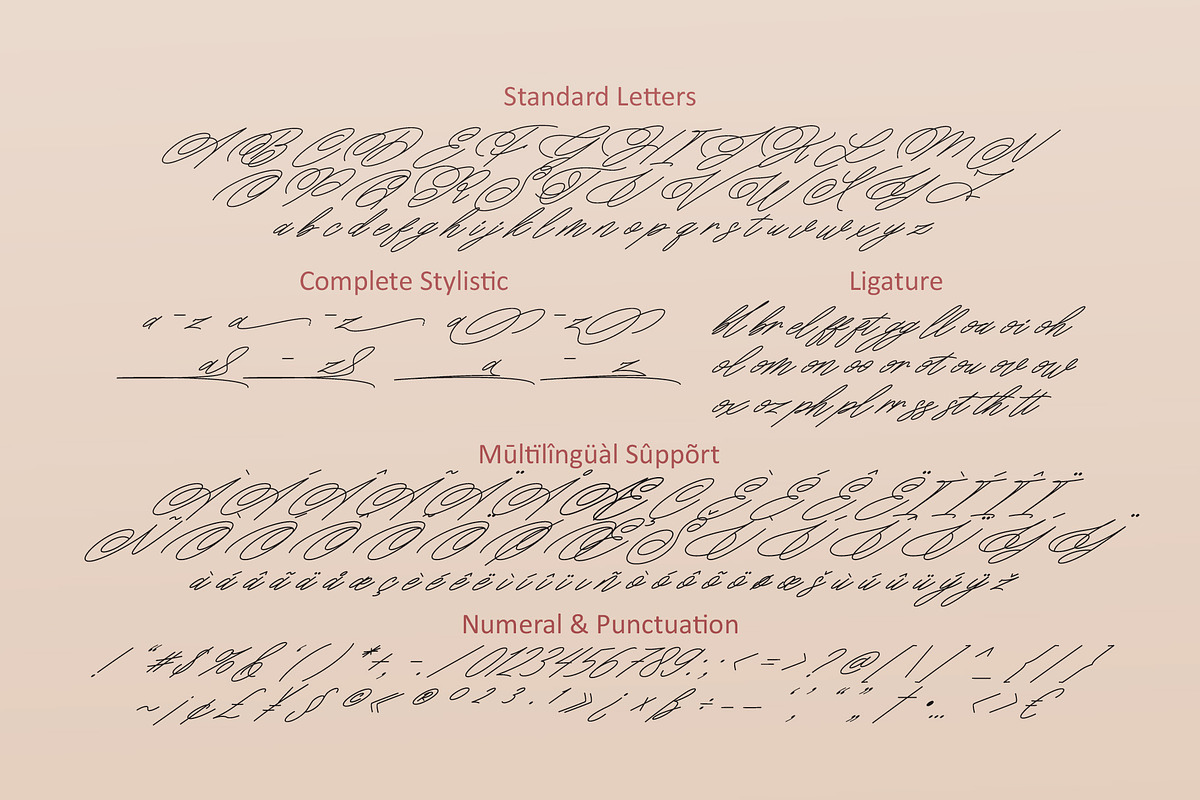 Standard Letters
A B C D E F G H I J K L M N
O P Q R S T U V W X Y Z
a b c d e f g h i j k l m n o p q r s t u v w x y z
Complete Stylistic
a - z a - z a - z
a - z a - z
Ligature
bl br el ff ft gg ll oa oi oh
ol om on oo or ot ou ov ow
ox oz ph pl rr ss st th tt
Mūltïlîngüàl Sûppõrt
À Á Â Ã Ä Å Æ Ç È É Ê Ë Ì Í Î Ï
Ñ Ò Ó Ô Õ Ö Ø Œ Š Ù Ú Û Ü Ý Ÿ
à á â ã ä å æ ç è é ê ë ì í î ï ı ñ ò ó ô õ ö ø œ š ù ú û ü ý ÿ ž
Numeral & Punctuation
! " # $ % & ' ( ) * + , - . / 0 1 2 3 4 5 6 7 8 9 : ; < = > ? @ [ \ ] ^ _ { | }
~ ¡ ¢ £ ¥ § © « ® 0 2 3 . 1 » ¿ × ß ÷ – — ‘ ’ ‚ “ ” „ † • … ‹ › €